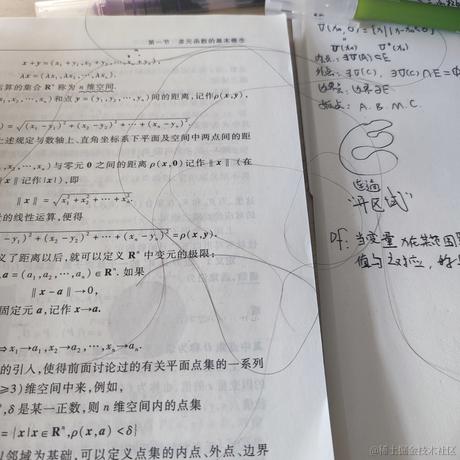 第一节 多元函数的基本概念
x+y=(x₁+y₁,x₂+y₂,⋯,xₙ+yₙ),
λx=(λx₁,λx₂,⋯,λxₙ).
运算的集合 Rⁿ 称为 n 维空间.
x₂,⋯,xₙ)和点 y=(y₁,y₂,⋯,yₙ)间的距离,记作ρ(x,y),
=√((x₁-y₁)²+(x₂-y₂)²+⋯+(xₙ-yₙ)²).
上述规定与数轴上、直角坐标系下平面及空间中两点间的距
x₂,⋯,xₙ)与零元 0 之间的距离 ρ(x,0)记作‖x‖(在
‖x‖记作|x|),即
‖x‖=√(x₁²+x₂²+⋯+xₙ²).
的线性运算,便得
-y₁)²+(x₂-y₂)²+⋯+(xₙ-yₙ)²=ρ(x,y).
义了距离以后,就可以定义 Rⁿ 中变元的极限:
a=(a₁,a₂,⋯,aₙ)∈Rⁿ.如果
‖x-a‖→0,
固定元 a,记作 x→a.
⇔x₁→a₁,x₂→a₂,⋯,xₙ→aₙ.
的引入,使得前面讨论过的有关平面点集的一系列
≥3)维空间中来,例如,
δ是某一正数,则 n 维空间内的点集
={x|x∈Rⁿ,ρ(x,a)<δ}
邻域为基础,可以定义点集的内点、外点、边界
内点: ∃U(A)⊂E
外点: ∃U(C), ∃U(C)∩E=Φ
边界点: 边界∂E
A. B. M. C.
连通
"开区域"
Df: 当变量
值与之对应,
@稀土掘金技术社区